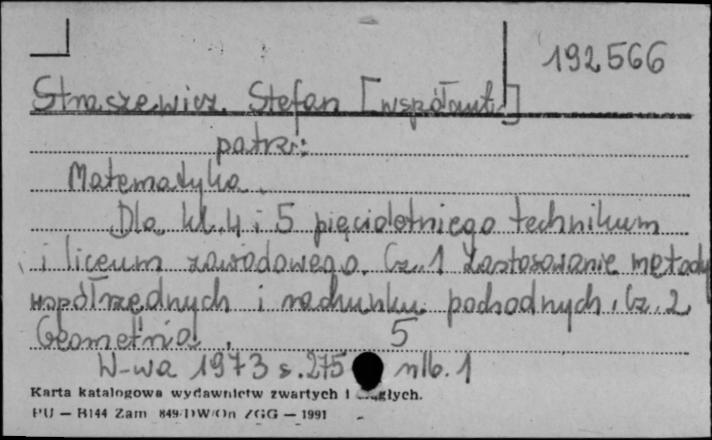 192566
Straszewicz Stefan [współaut.]
patrz:
Matematyka.
Dla kl. 4 i 5 pięcioletniego technikum
i liceum zawodowego. Cz. 1 Zastosowanie metody
współrzędnych i rachunku pochodnych. Cz. 2
Geometria. 5
W-wa 1973 s. 275 nlb. 1
Karta katalogowa wydawnictw zwartych i ciągłych.
PU — B144 Zam 849/DW/On ZGG — 1991